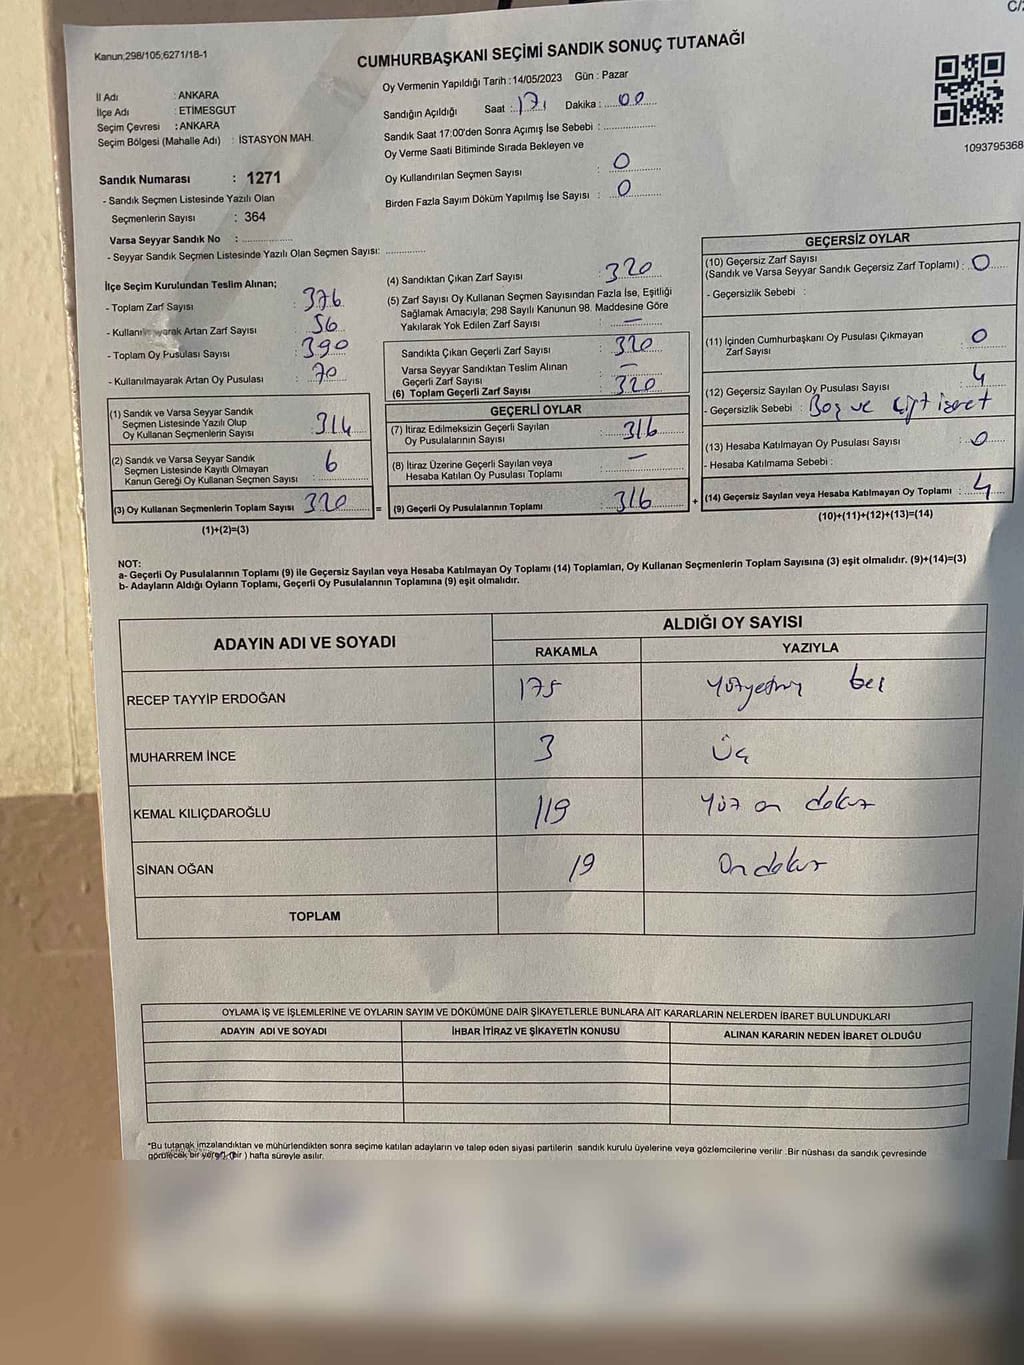 C/2
Kanun;298/105;6271/18-1
CUMHURBAŞKANI SEÇİMİ SANDIK SONUÇ TUTANAĞI
İl Adı : ANKARA
İlçe Adı : ETİMESGUT
Seçim Çevresi : ANKARA
Seçim Bölgesi (Mahalle Adı) : İSTASYON MAH.
Oy Vermenin Yapıldığı Tarih : 14/05/2023 Gün : Pazar
Sandığın Açıldığı Saat : 17 Dakika : 00
Sandık Saat 17:00'den Sonra Açımış İse Sebebi :
Oy Verme Saati Bitiminde Sırada Bekleyen ve
Oy Kullandırılan Seçmen Sayısı : 0
Birden Fazla Sayım Döküm Yapılmış İse Sayısı : 0
1093795368
Sandık Numarası : 1271
- Sandık Seçmen Listesinde Yazılı Olan
Seçmenlerin Sayısı : 364
Varsa Seyyar Sandık No :
- Seyyar Sandık Seçmen Listesinde Yazılı Olan Seçmen Sayısı:
İlçe Seçim Kurulundan Teslim Alınan;
- Toplam Zarf Sayısı : 376
- Kullanılmayarak Artan Zarf Sayısı : 56
- Toplam Oy Pusulası Sayısı : 390
- Kullanılmayarak Artan Oy Pusulası : 70
(1) Sandık ve Varsa Seyyar Sandık
Seçmen Listesinde Yazılı Olup
Oy Kullanan Seçmenlerin Sayısı : 314
(2) Sandık ve Varsa Seyyar Sandık
Seçmen Listesinde Kayıtlı Olmayan
Kanun Gereği Oy Kullanan Seçmen Sayısı : 6
(3) Oy Kullanan Seçmenlerin Toplam Sayısı : 320
(1)+(2)=(3)
(4) Sandıktan Çıkan Zarf Sayısı : 320
(5) Zarf Sayısı Oy Kullanan Seçmen Sayısından Fazla İse, Eşitliği
Sağlamak Amacıyla; 298 Sayılı Kanunun 98. Maddesine Göre
Yakılarak Yok Edilen Zarf Sayısı : —
Sandıkta Çıkan Geçerli Zarf Sayısı : 320
Varsa Seyyar Sandıktan Teslim Alınan
Geçerli Zarf Sayısı : —
(6) Toplam Geçerli Zarf Sayısı : 320
GEÇERLİ OYLAR
(7) İtiraz Edilmeksizin Geçerli Sayılan
Oy Pusulalarının Sayısı : 316
(8) İtiraz Üzerine Geçerli Sayılan veya
Hesaba Katılan Oy Pusulası Toplamı : —
= (9) Geçerli Oy Pusulalarının Toplamı : 316 +
GEÇERSİZ OYLAR
(10) Geçersiz Zarf Sayısı
(Sandık ve Varsa Seyyar Sandık Geçersiz Zarf Toplamı) : 0
- Geçersizlik Sebebi :
(11) İçinden Cumhurbaşkanı Oy Pusulası Çıkmayan
Zarf Sayısı : 0
(12) Geçersiz Sayılan Oy Pusulası Sayısı : 4
- Geçersizlik Sebebi : Boş ve Çift işaret
(13) Hesaba Katılmayan Oy Pusulası Sayısı : 0
- Hesaba Katılmama Sebebi :
(14) Geçersiz Sayılan veya Hesaba Katılmayan Oy Toplamı : 4
(10)+(11)+(12)+(13)=(14)
NOT:
a- Geçerli Oy Pusulalarının Toplamı (9) ile Geçersiz Sayılan veya Hesaba Katılmayan Oy Toplamı (14) Toplamları, Oy Kullanan Seçmenlerin Toplam Sayısına (3) eşit olmalıdır. (9)+(14)=(3)
b- Adayların Aldığı Oyların Toplamı, Geçerli Oy Pusulalarının Toplamına (9) eşit olmalıdır.
ADAYIN ADI VE SOYADI
ALDIĞI OY SAYISI
RAKAMLA YAZIYLA
RECEP TAYYİP ERDOĞAN 175 Yüzyetmiş beş
MUHARREM İNCE 3 Üç
KEMAL KILIÇDAROĞLU 119 Yüz on dokuz
SİNAN OĞAN 19 On dokuz
TOPLAM
OYLAMA İŞ VE İŞLEMLERİNE VE OYLARIN SAYIM VE DÖKÜMÜNE DAİR ŞİKAYETLERLE BUNLARA AİT KARARLARIN NELERDEN İBARET BULUNDUKLARI
ADAYIN ADI VE SOYADI İHBAR İTİRAZ VE ŞİKAYETİN KONUSU ALINAN KARARIN NEDEN İBARET OLDUĞU
*Bu tutanak imzalandıktan ve mühürlendikten sonra seçime katılan adayların ve talep eden siyasi partilerin sandık kurulu üyelerine veya gözlemcilerine verilir .Bir nüshası da sandık çevresinde
görülecek bir yere 1 (bir ) hafta süreyle asılır.